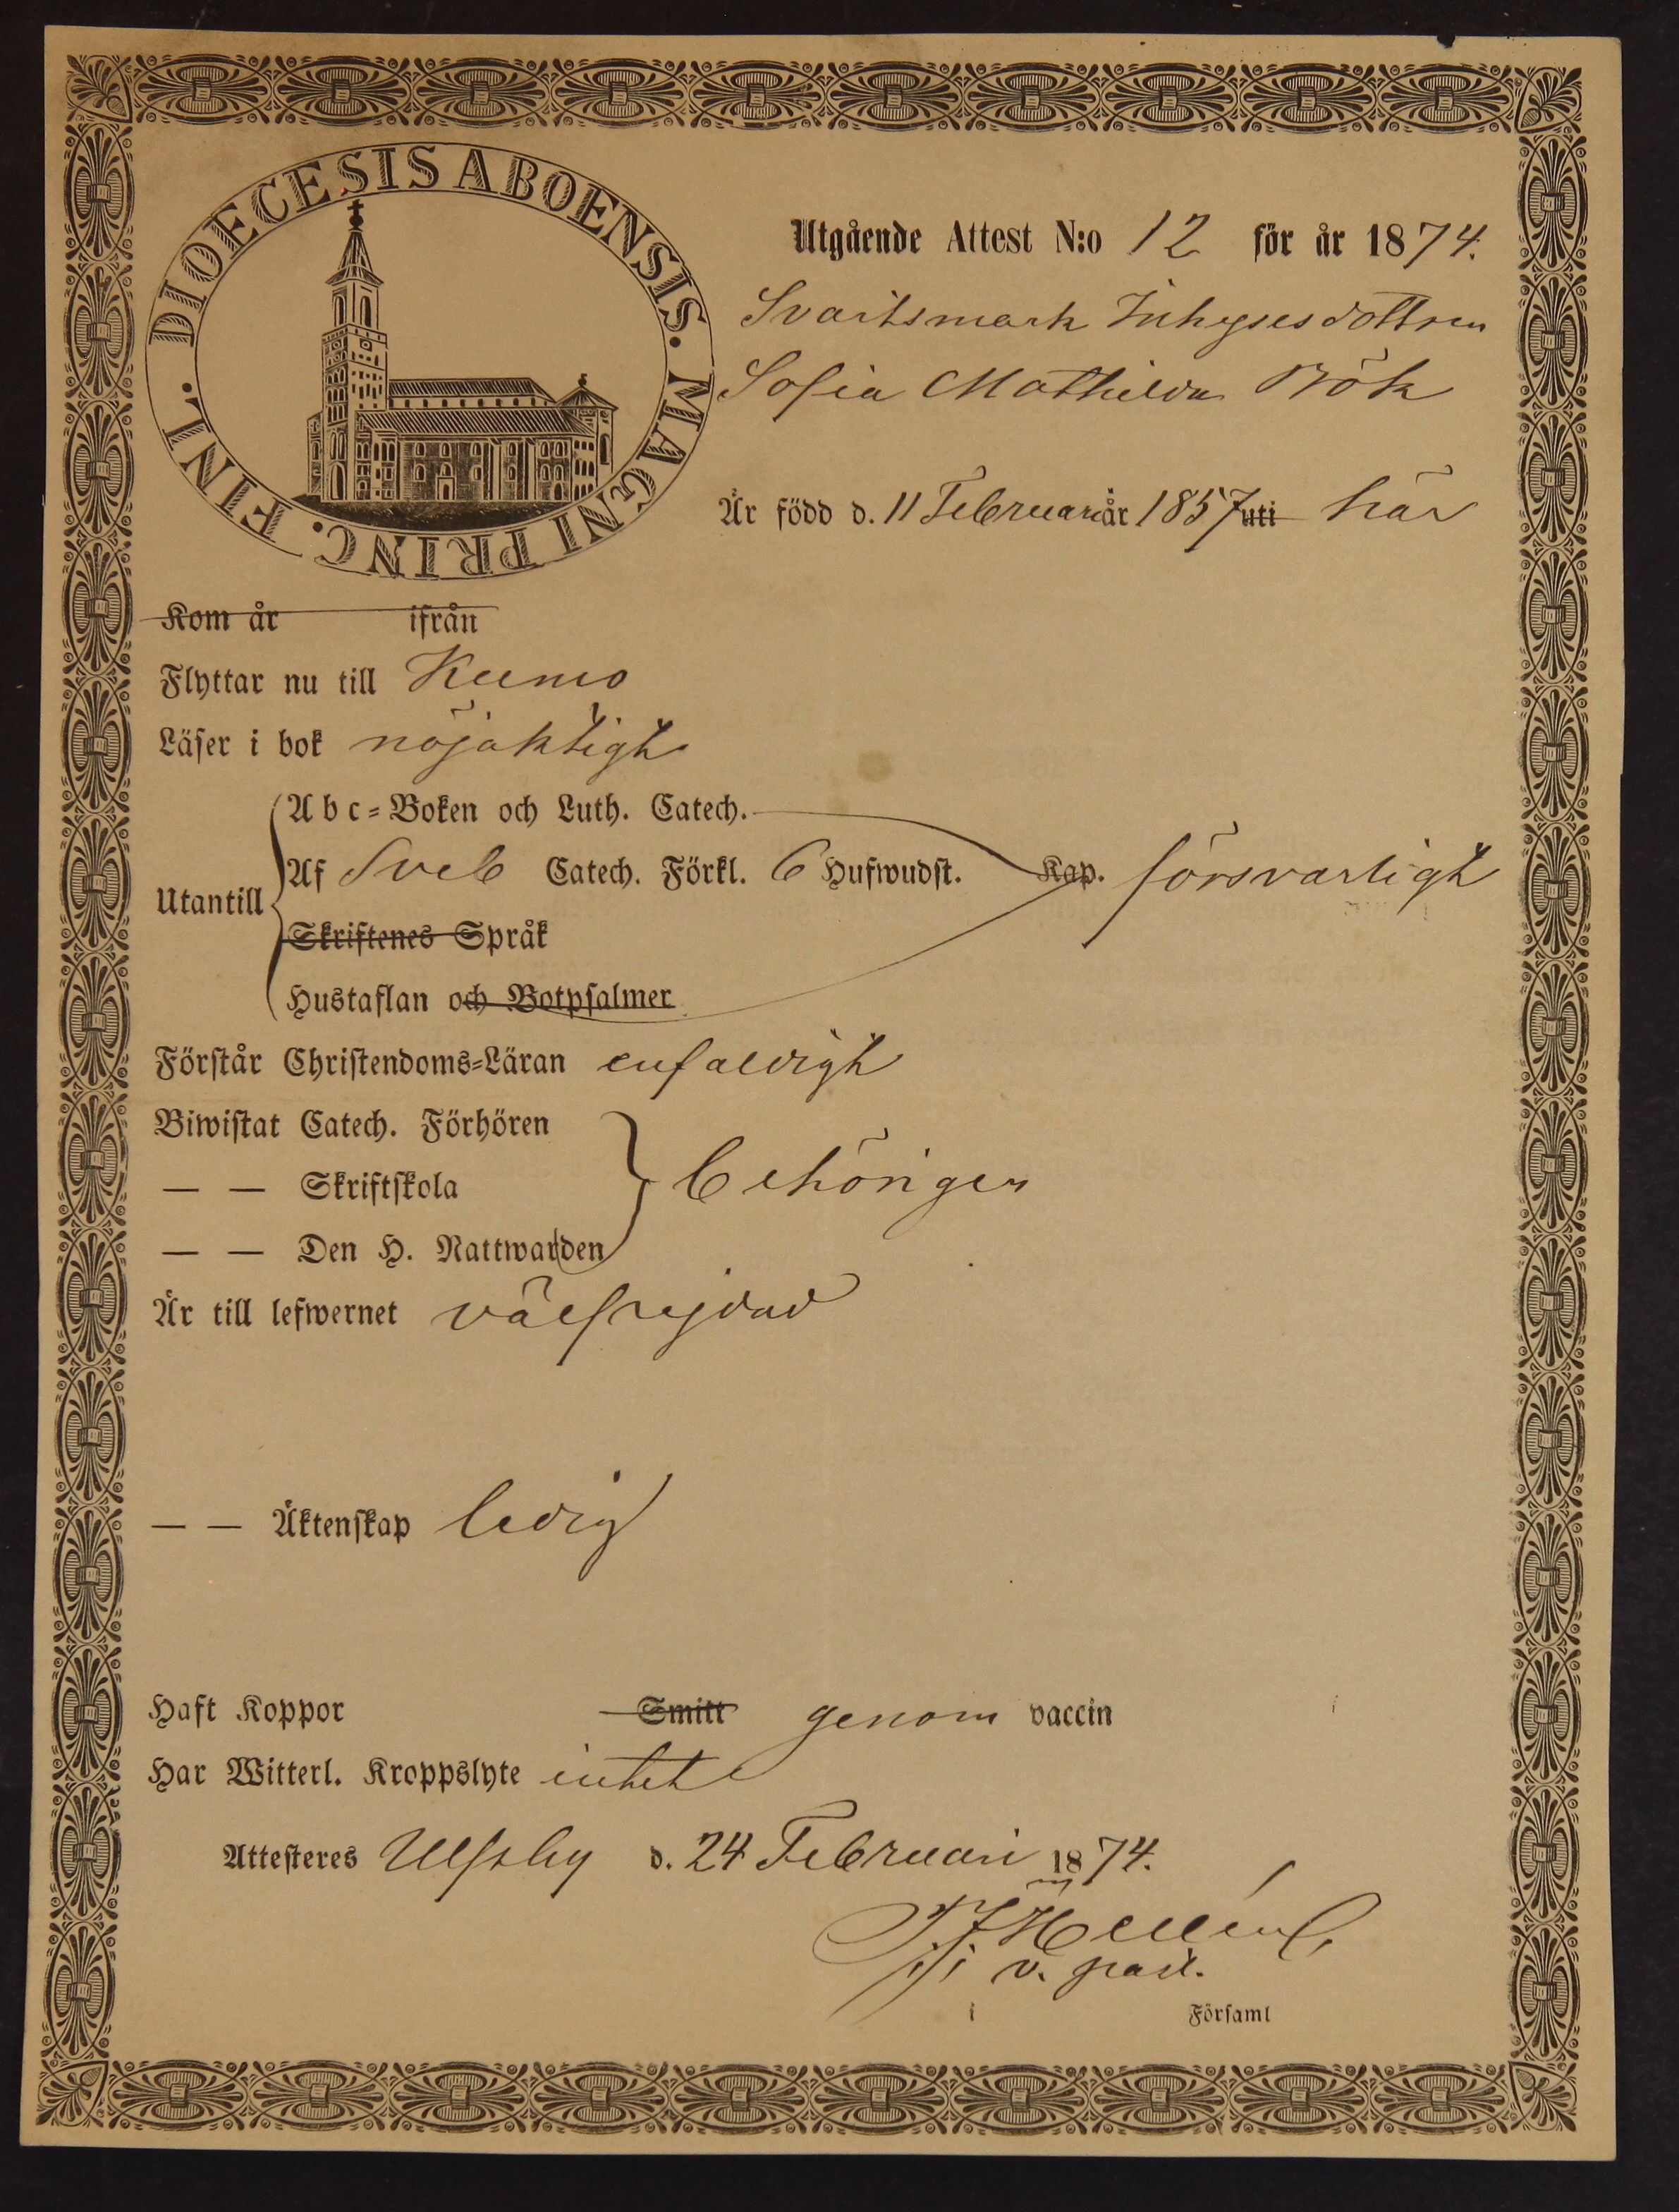 DIOECESIS ABOENSIS. MAGNI PRINC. FINL.
Utgående Attest N:o 12 för år 1874.
Svartsmark Inhysesdottren
Sofia Mathilda Bök
Är född d. 11 Februari år 1857 uti här
Kom år ifrån
Flyttar nu till Kumo
Läser i bok nöjaktigt
Utantill
Abc-Boken och Luth. Catech.
Af Sveb Catech. Förkl. 6 Hufwudst. Kap. försvarligt
Skriftenes Språk
Hustaflan och Botpsalmer
Förstår Christendoms-Läran enfaldigt
Biwistat Catech. Förhören
— — Skriftskola behörigen
— — Den H. Nattwarden
Är till lefwernet välfrejdad
— — Äktenskap ledig
Haft Koppor Smitt genom vaccin
Har Witterl. Kroppslyte intet
Attesteres Ulfsby d. 24 Februari 1874.
v. past.
i Församl